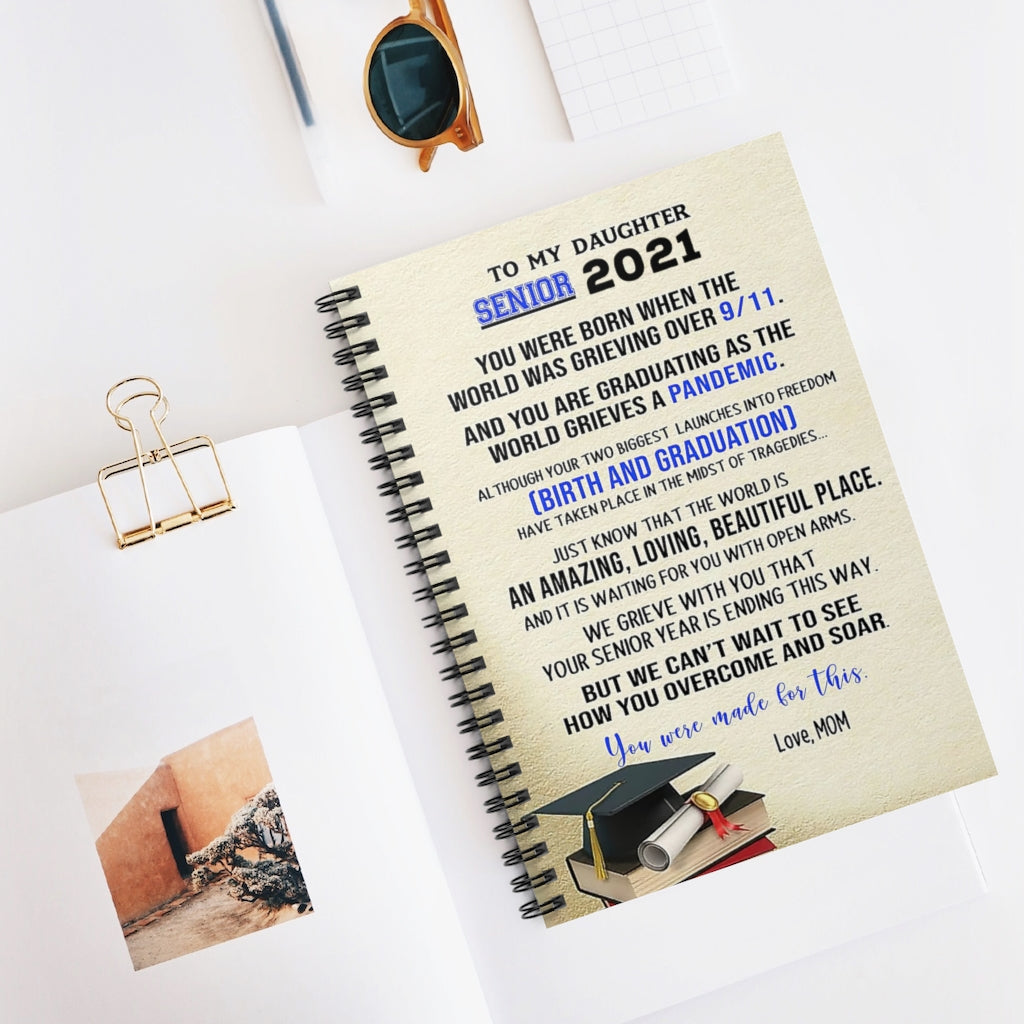 TO MY DAUGHTER
SENIOR 2021
YOU WERE BORN WHEN THE
WORLD WAS GRIEVING OVER 9/11.
AND YOU ARE GRADUATING AS THE
WORLD GRIEVES A PANDEMIC.
ALTHOUGH YOUR TWO BIGGEST LAUNCHES INTO FREEDOM
(BIRTH AND GRADUATION)
HAVE TAKEN PLACE IN THE MIDST OF TRAGEDIES...
JUST KNOW THAT THE WORLD IS
AN AMAZING, LOVING, BEAUTIFUL PLACE.
AND IT IS WAITING FOR YOU WITH OPEN ARMS.
WE GRIEVE WITH YOU THAT
YOUR SENIOR YEAR IS ENDING THIS WAY.
BUT WE CAN'T WAIT TO SEE
HOW YOU OVERCOME AND SOAR.
You were made for this.
Love, MOM